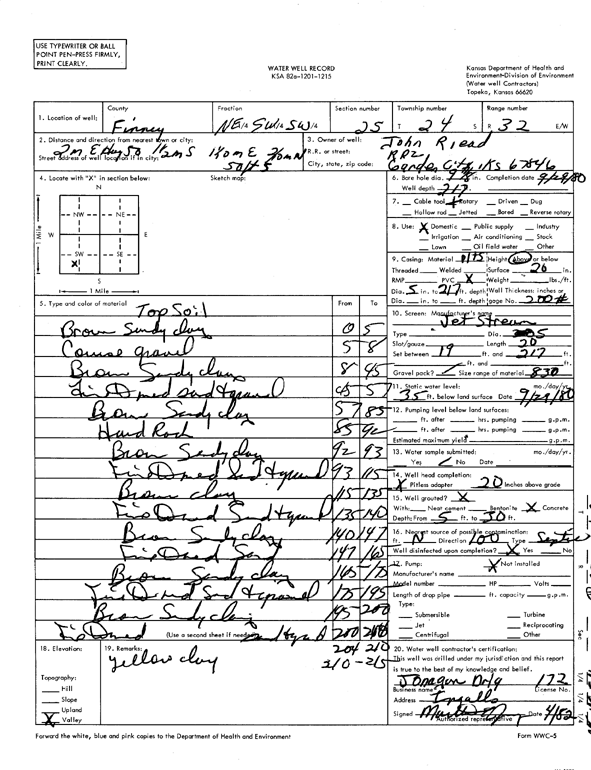 USE TYPEWRITER OR BALL
POINT PEN-PRESS FIRMLY,
PRINT CLEARLY.
WATER WELL RECORD
KSA 82a-1201-1215
Kansas Department of Health and
Environment-Division of Environment
(Water well Contractors)
Topeka, Kansas 66620
1. Location of well:
County
Finney
Fraction
NE 1/4 SW 1/4 SW 1/4
Section number
25
Township number
T 24 S
Range number
R 32 E/W
2. Distance and direction from nearest town or city:
Street address of well location if in city:
3. Owner of well:
R.R. or street:
City, state, zip code:
John
RR2
Garden City, Ks 67846
4. Locate with "X" in section below:
Sketch map:
N
NW NE
W E
SW SE
X
S
1 Mile
1 Mile
6. Bore hole dia. in. Completion date 9/29/80
Well depth 217
7. Cable tool Rotary Driven Dug
Hollow rod Jetted Bored Reverse rotary
8. Use: X Domestic Public supply Industry
Irrigation Air conditioning Stock
Lawn Oil field water Other
9. Casing: Material Height: Above or below
Threaded Welded Surface 20 in.
RMP PVC X Weight lbs./ft.
Dia. 5 in. to 217 ft. depth Wall Thickness: inches or
Dia. in. to ft. depth gage No. 200#
5. Type and color of material
From To
Top Soil
Brown Sandy clay 0 5
Course gravel 5 8
Brown Sandy clay 8 45
45 57
Brown Sandy clay 57 85
Hard Rock 85 92
Brown Sandy clay 92 93
93 115
Brown clay 115 135
135 140
Brown Sandy clay 140 147
147 165
Brown Sandy clay 165 175
175 195
Brown Sandy clay 195 200
(Use a second sheet if needed) 200
204 210
210-215
10. Screen: Manufacturer's name
Jet Stream
Type Dia.
Slot/gauze Length 20
Set between ft. and 217 ft.
ft. and ft.
Gravel pack? Size range of material 830
11. Static water level: mo./day/yr.
35 ft. below land surface Date 9/29/80
12. Pumping level below land surfaces:
ft. after hrs. pumping g.p.m.
ft. after hrs. pumping g.p.m.
Estimated maximum yield g.p.m.
13. Water sample submitted: mo./day/yr.
Yes No Date
14. Well head completion:
X Pitless adapter 20 Inches above grade
15. Well grouted? X
With: Neat cement Bentonite X Concrete
Depth: From 5 ft. to 30 ft.
16. Nearest source of possible contamination:
ft. N Direction 100 Type Septic
Well disinfected upon completion? X Yes No
17. Pump: X Not installed
Manufacturer's name
Model number HP Volts
Length of drop pipe ft. capacity g.p.m.
Type:
Submersible Turbine
Jet Reciprocating
Centrifugal Other
18. Elevation:
Topography:
Hill
Slope
Upland
X Valley
19. Remarks:
yellow clay
20. Water well contractor's certification:
This well was drilled under my jurisdiction and this report
is true to the best of my knowledge and belief.
Jonagan Drlg 172
Business name License No.
Address Ingalls
Signed Date 4/82
Authorized representative
Forward the white, blue and pink copies to the Department of Health and Environment
Form WWC-5